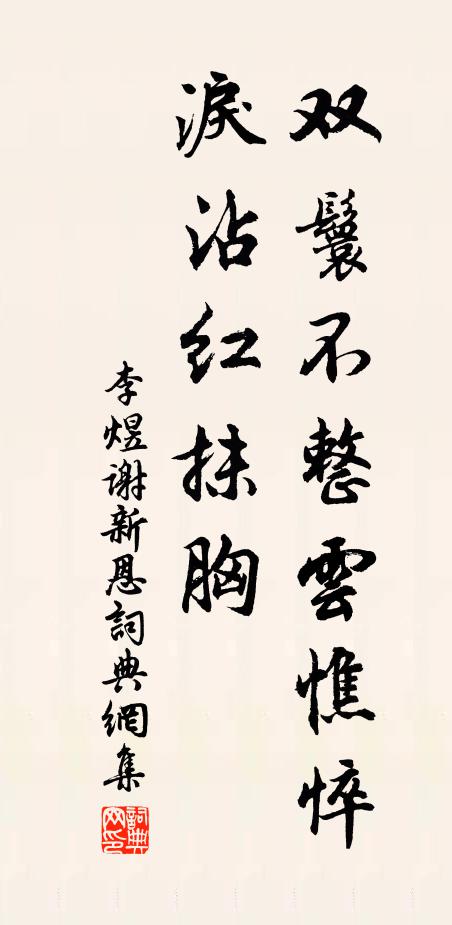 双鬟不整雲憔悴
淚沾红抹胸
李煜谢新恩詞典網集
詞典网印